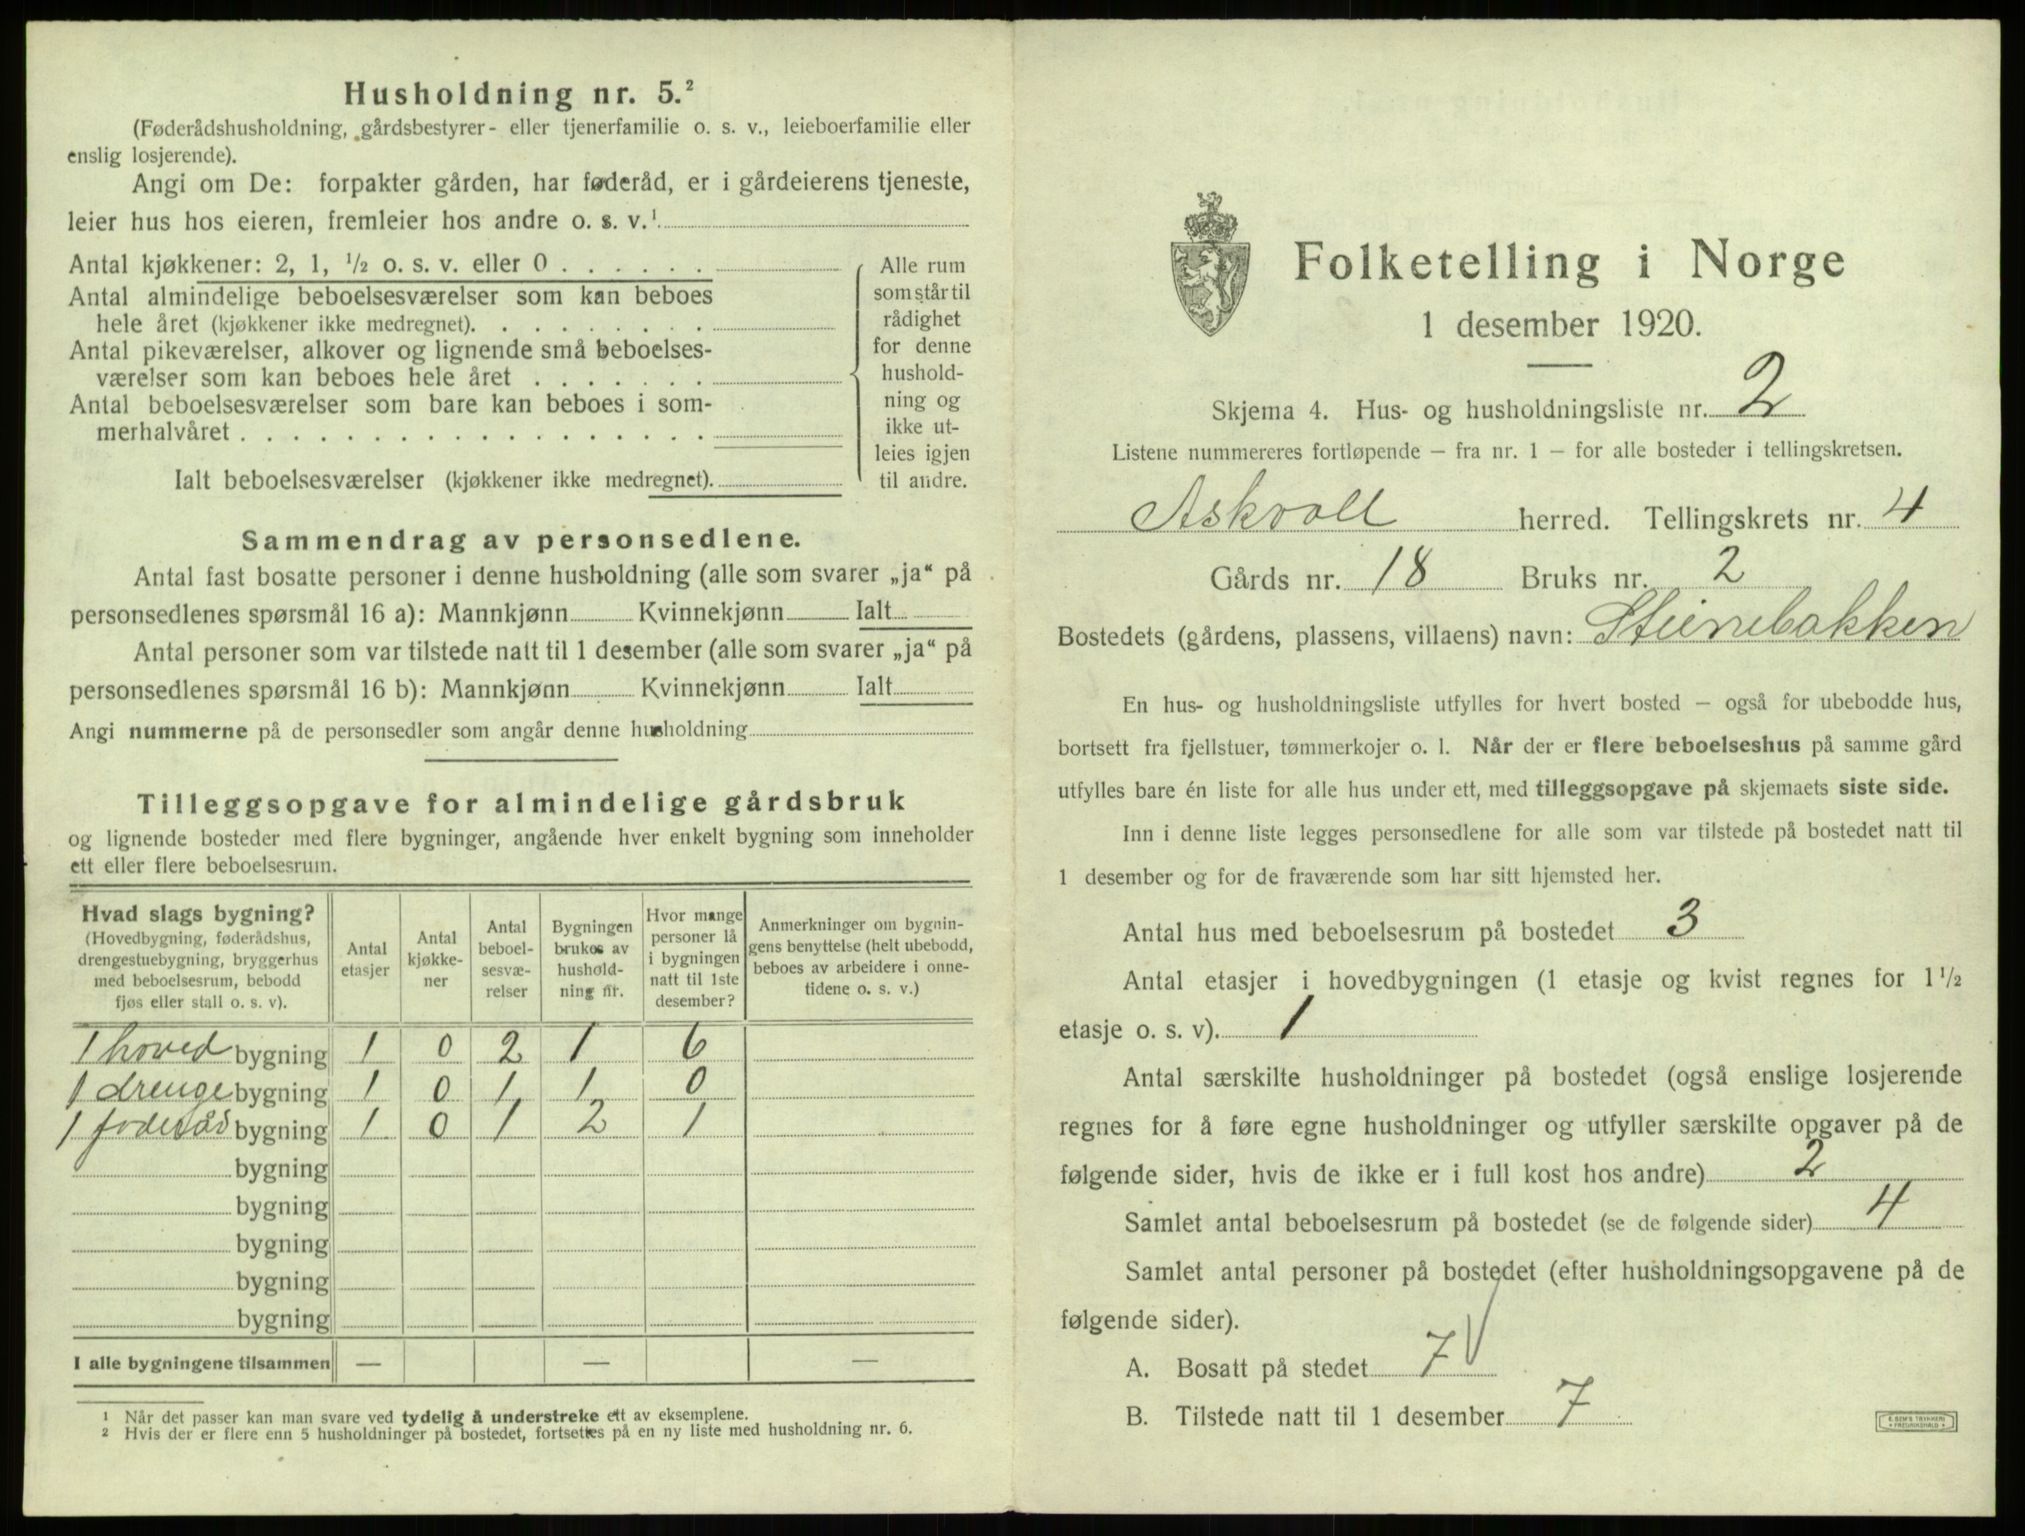 Husholdning nr. 5.²
(Føderådshusholdning, gårdsbestyrer- eller tjenerfamilie o. s. v., leieboerfamilie eller
enslig losjerende).
Angi om De: forpakter gården, har føderåd, er i gårdeierens tjeneste,
leier hus hos eieren, fremleier hos andre o. s. v.¹
Antal kjøkkener: 2, 1, ½ o. s. v. eller 0 . . . . . .
Antal almindelige beboelsesværelser som kan beboes
hele året (kjøkkener ikke medregnet). . . . . . . . .
Antal pikeværelser, alkover og lignende små beboelses-
værelser som kan beboes hele året . . . . . . .
Antal beboelsesværelser som bare kan beboes i som-
merhalvåret . . . . . . . . . . . . . . . . . .
Ialt beboelsesværelser (kjøkkener ikke medregnet).
Alle rum
som står til
rådighet
for denne
hushold-
ning og
ikke ut-
leies igjen
til andre.
Sammendrag av personsedlene.
Antal fast bosatte personer i denne husholdning (alle som svarer „ja“ på
personsedlenes spørsmål 16 a): Mannkjønn Kvinnekjønn Ialt
Antal personer som var tilstede natt til 1 desember (alle som svarer „ja“ på
personsedlenes spørsmål 16 b): Mannkjønn Kvinnekjønn Ialt
Angi nummerne på de personsedler som angår denne husholdning
Tilleggsopgave for almindelige gårdsbruk
og lignende bosteder med flere bygninger, angående hver enkelt bygning som inneholder
ett eller flere beboelsesrum.
Hvad slags bygning?
(Hovedbygning, føderådshus,
drengestuebygning, bryggerhus
med beboelsesrum, bebodd
fjøs eller stall o. s. v).
Antal
etasjer
Antal
kjøkke-
ner
Antal
beboel-
sesvæ-
relser
Bygningen
brukes av
hushold-
ning nr.
Hvor mange
personer lå
i bygningen
natt til 1ste
desember?
Anmerkninger om bygnin-
gens benyttelse (helt ubebodd,
beboes av arbeidere i onne-
tidene o. s. v.)
1 hoved bygning 1 0 2 1 6
1 drenge bygning 1 0 1 1 0
1 foderåd bygning 1 0 1 2 1
bygning
bygning
bygning
bygning
bygning
I alle bygningene tilsammen — — —
¹ Når det passer kan man svare ved tydelig å understreke ett av eksemplene.
² Hvis der er flere enn 5 husholdninger på bostedet, fortsettes på en ny liste med husholdning nr. 6.
Folketelling i Norge
1 desember 1920.
Skjema 4. Hus- og husholdningsliste nr. 2
Listene nummereres fortløpende — fra nr. 1 — for alle bosteder i tellingskretsen.
Askvoll herred. Tellingskrets nr. 4
Gårds nr. 18 Bruks nr. 2
Bostedets (gårdens, plassens, villaens) navn: Steinebakken
En hus- og husholdningsliste utfylles for hvert bosted — også for ubebodde hus,
bortsett fra fjellstuer, tømmerkojer o. l. Når der er flere beboelseshus på samme gård
utfylles bare én liste for alle hus under ett, med tilleggsopgave på skjemaets siste side.
Inn i denne liste legges personsedlene for alle som var tilstede på bostedet natt til
1 desember og for de fraværende som har sitt hjemsted her.
Antal hus med beboelsesrum på bostedet 3
Antal etasjer i hovedbygningen (1 etasje og kvist regnes for 1½
etasje o. s. v). 1
Antal særskilte husholdninger på bostedet (også enslige losjerende
regnes for å føre egne husholdninger og utfyller særskilte opgaver på de
følgende sider, hvis de ikke er i full kost hos andre) 2
Samlet antal beboelsesrum på bostedet (se de følgende sider) 4
Samlet antal personer på bostedet (efter husholdningsopgavene på de
følgende sider).
A. Bosatt på stedet 7 V
B. Tilstede natt til 1 desember 7
E. SEM'S TRYKKERI
FREDRIKSHALD